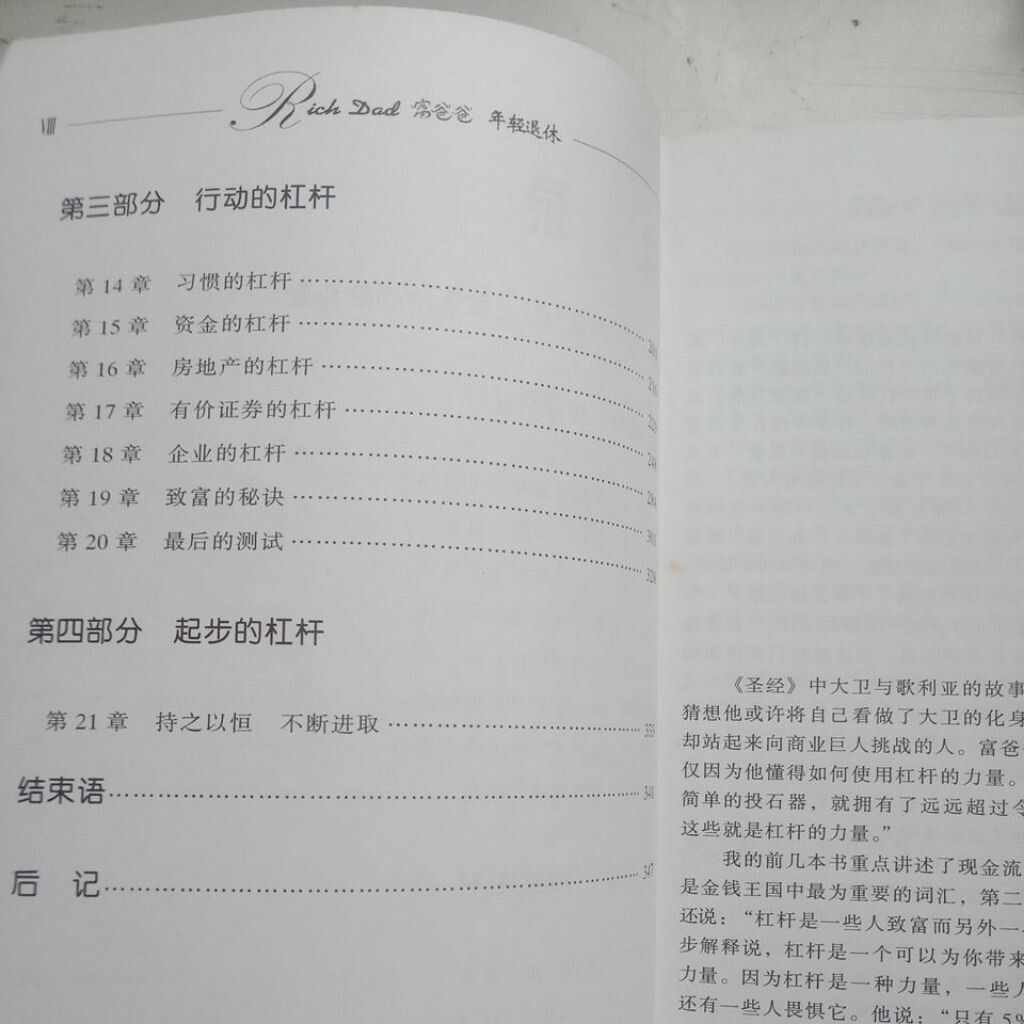 VIII
Rich Dad 富爸爸 年轻退休
第三部分 行动的杠杆
第 14 章 习惯的杠杆
第 15 章 资金的杠杆 216
第 16 章 房地产的杠杆 229
第 17 章 有价证券的杠杆 248
第 18 章 企业的杠杆 284
第 19 章 致富的秘诀 301
第 20 章 最后的测试 328
第四部分 起步的杠杆
第 21 章 持之以恒 不断进取 333
结束语 341
后 记 347
《圣经》中大卫与歌利亚的故事
猜想他或许将自己看做了大卫的化身
却站起来向商业巨人挑战的人。富爸
仅因为他懂得如何使用杠杆的力量。
简单的投石器，就拥有了远远超过
这些就是杠杆的力量。”
我的前几本书重点讲述了现金流
是金钱王国中最为重要的词汇，第二
还说：“杠杆是一些人致富而另外一
步解释说，杠杆是一个可以为你带来
力量。因为杠杆是一种力量，一些人
还有一些人畏惧它。他说：“只有 5%